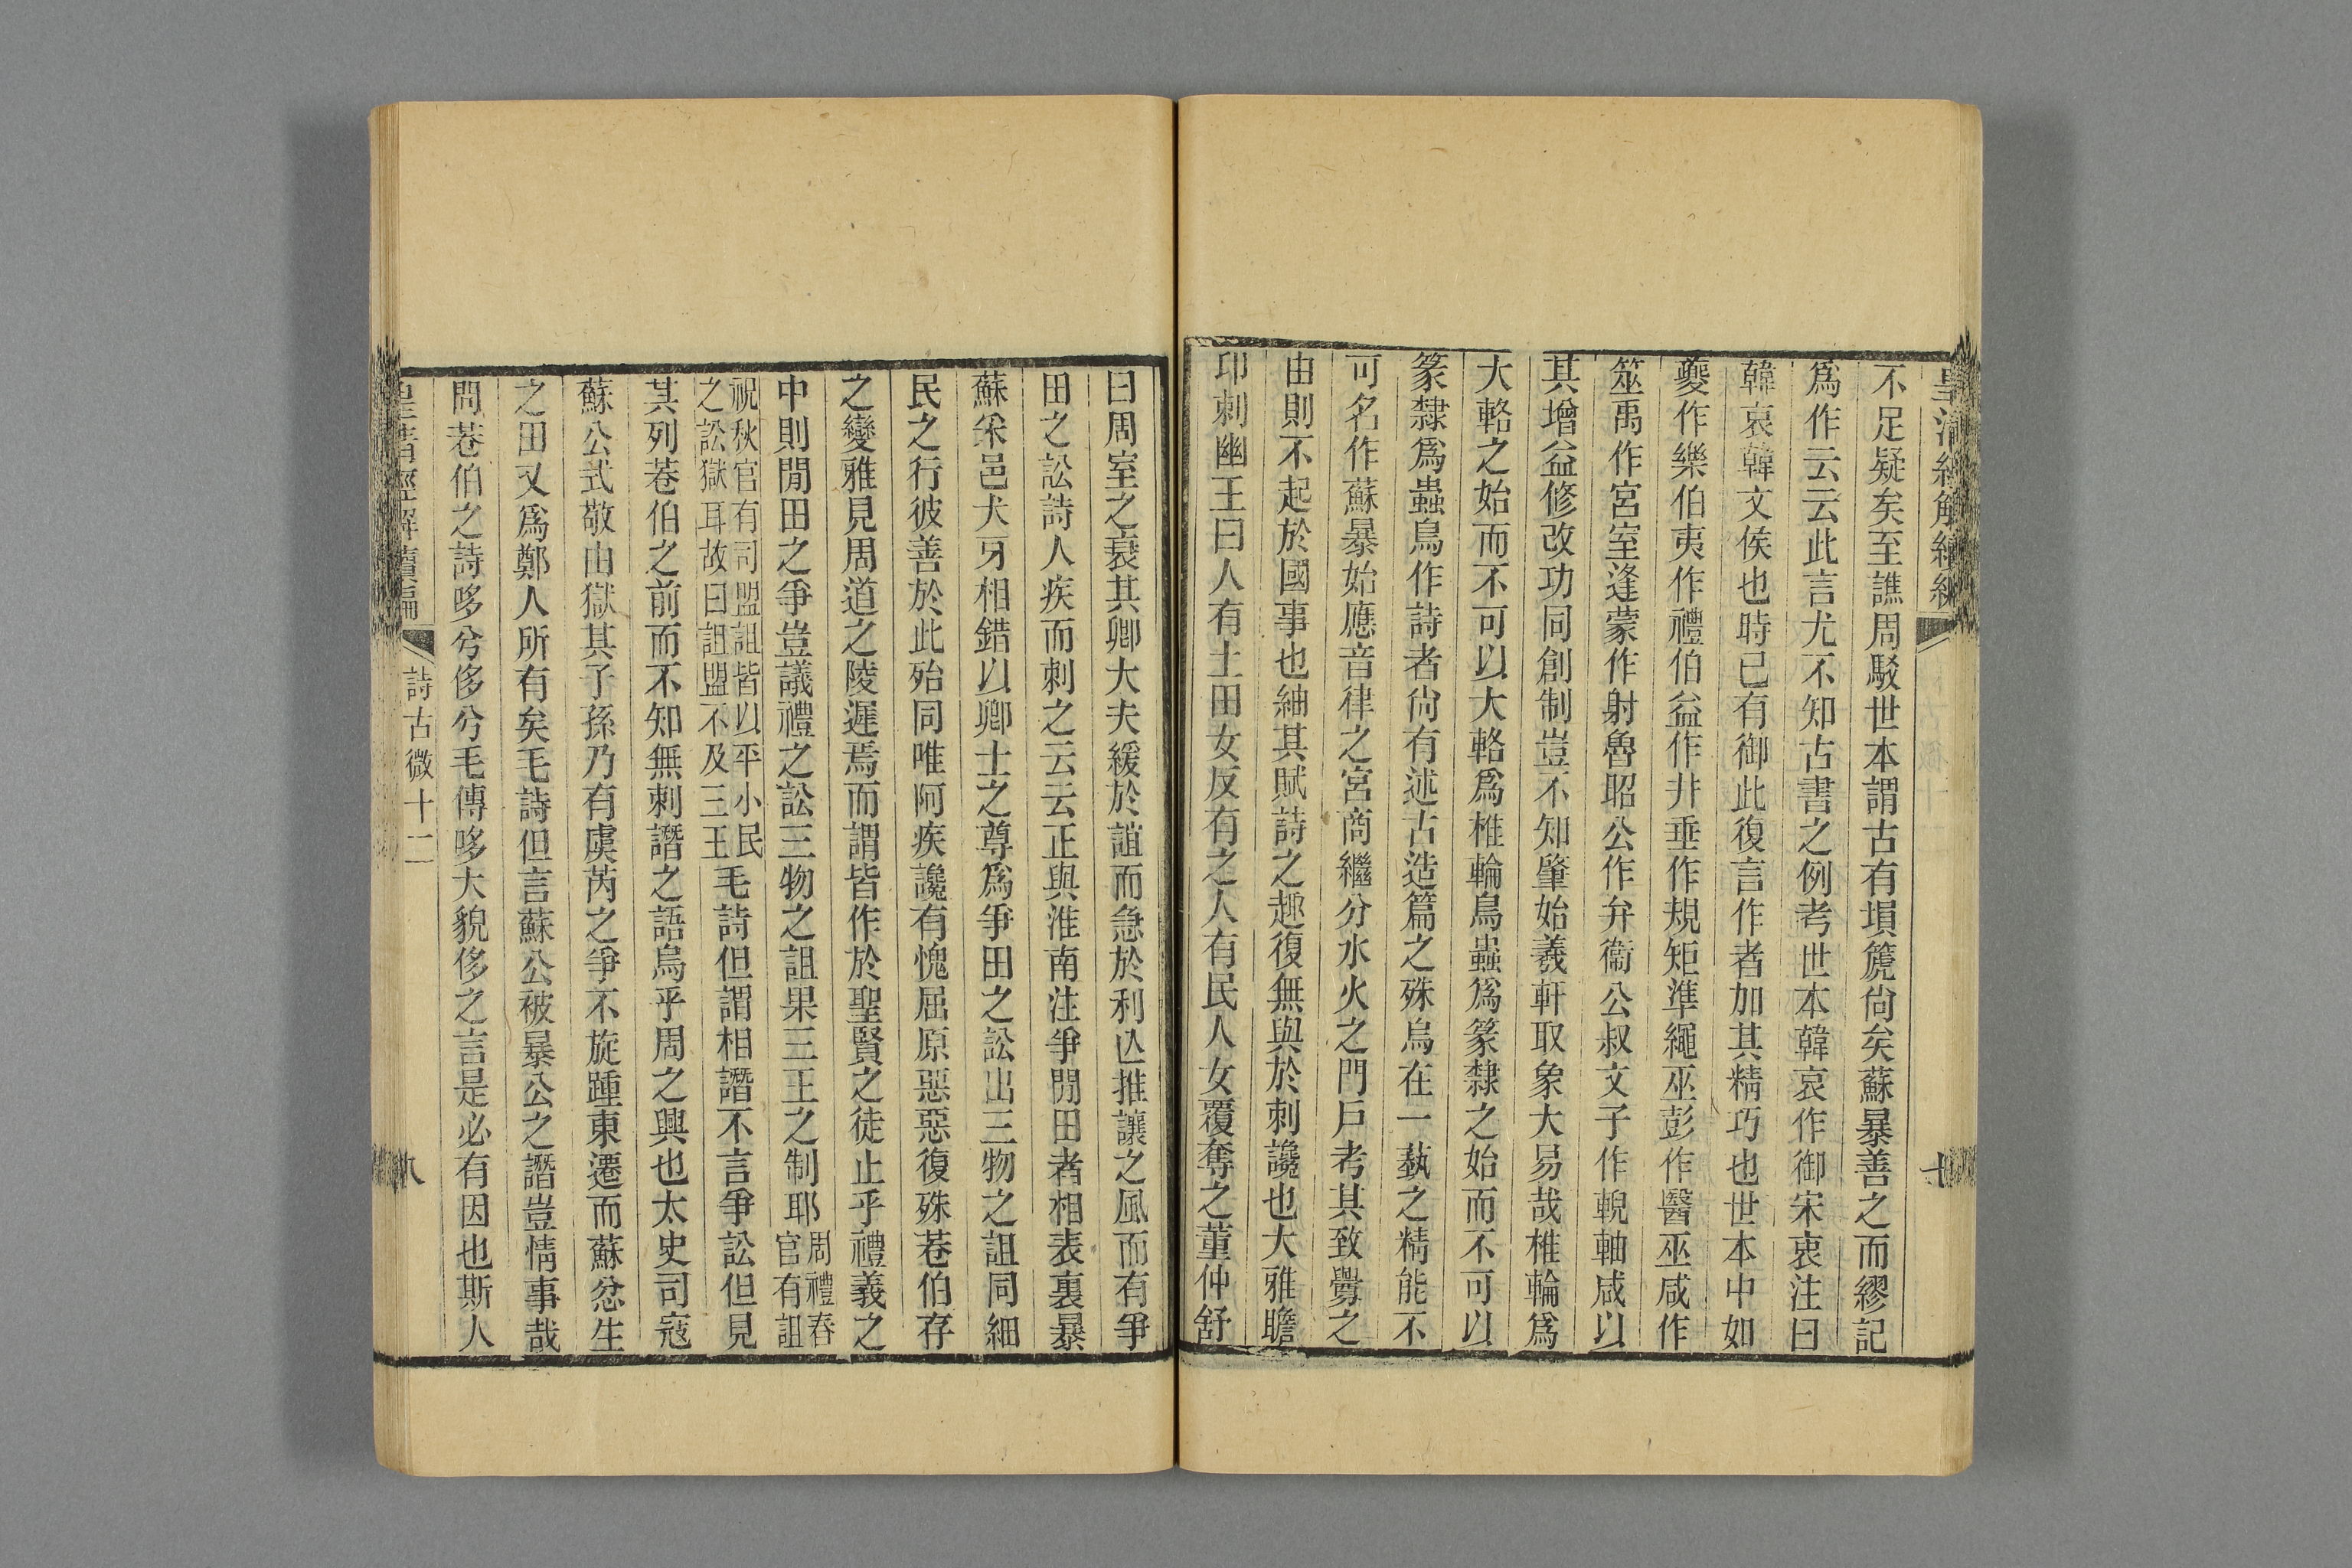 皇清經解續編
不足疑矣至譙周駁世本謂古有塤篪尙矣蘇暴善之而繆記
爲作云云此言尤不知古書之例考世本韓哀作御宋衷注曰
韓哀韓文侯也時已有御此復言作者加其精巧也世本中如
夔作樂伯夷作禮伯益作井垂作規矩準繩巫彭作醫巫咸作
筮禹作宮室逢蒙作射魯昭公作弁衞公叔文子作輗軸咸以
其增益修改功同創制豈不知肇始羲軒取象大易哉椎輪爲
大輅之始而不可以大輅爲椎輪鳥蟲爲篆隸之始而不可以
篆隸爲蟲鳥作詩者尙有述古造篇之殊烏在一埶之精能不
可名作蘇暴始應音律之宮商繼分水火之門戶考其致釁之
由則不起於國事也紬其賦詩之趣復無與於刺讒也大雅瞻
卬刺幽王曰人有土田女反有之人有民人女覆奪之董仲舒
曰周室之衰其卿大夫緩於誼而急於利亾推讓之風而有爭
田之訟詩人疾而刺之云云正與淮南注爭閒田者相表裏暴
蘇采邑犬牙相錯以卿士之尊爲爭田之訟出三物之詛同細
民之行彼善於此殆同唯阿疾讒有愧屈原惡惡復殊巷伯存
之變雅見周道之陵遲焉而謂皆作於聖賢之徒止乎禮義之
中則閒田之爭豈議禮之訟三物之詛果三王之制耶周禮春
官有詛
祝秋官有司盟詛皆以平小民
之訟獄耳故曰詛盟不及三王毛詩但謂相譖不言爭訟但見
其列巷伯之前而不知無刺譖之語烏乎周之興也太史司寇
蘇公式敬由獄其子孫乃有虞芮之爭不旋踵東遷而蘇忿生
之田又爲鄭人所有矣毛詩但言蘇公被暴公之譖豈情事哉
問巷伯之詩哆兮侈兮毛傳哆大貌侈之言是必有因也斯人
皇清經解續編
詩古微十二
八